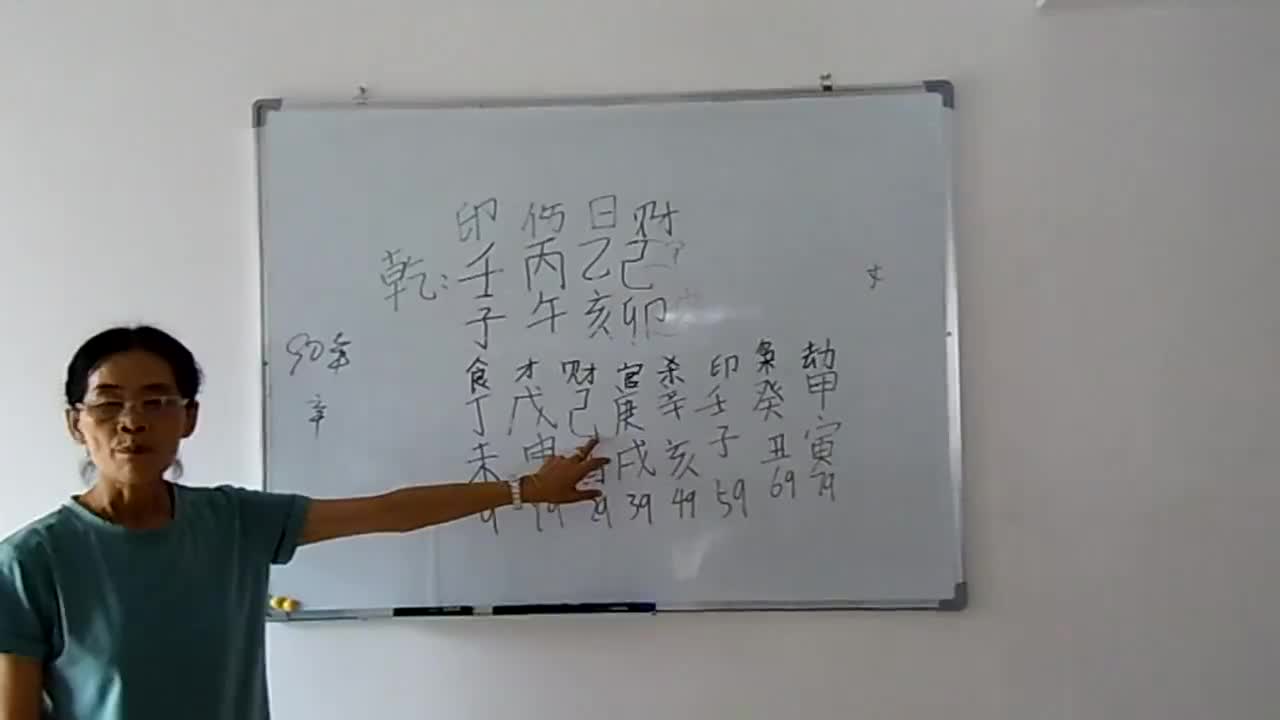 印 伤 日 财
乾: 壬 丙 乙 己
子 午 亥 卯
90年
食 才 财 官 杀 印 枭 劫
丁 戊 己 庚 辛 壬 癸 甲
未 申 戌 亥 子 丑 寅
9 19 29 39 49 59 69 79